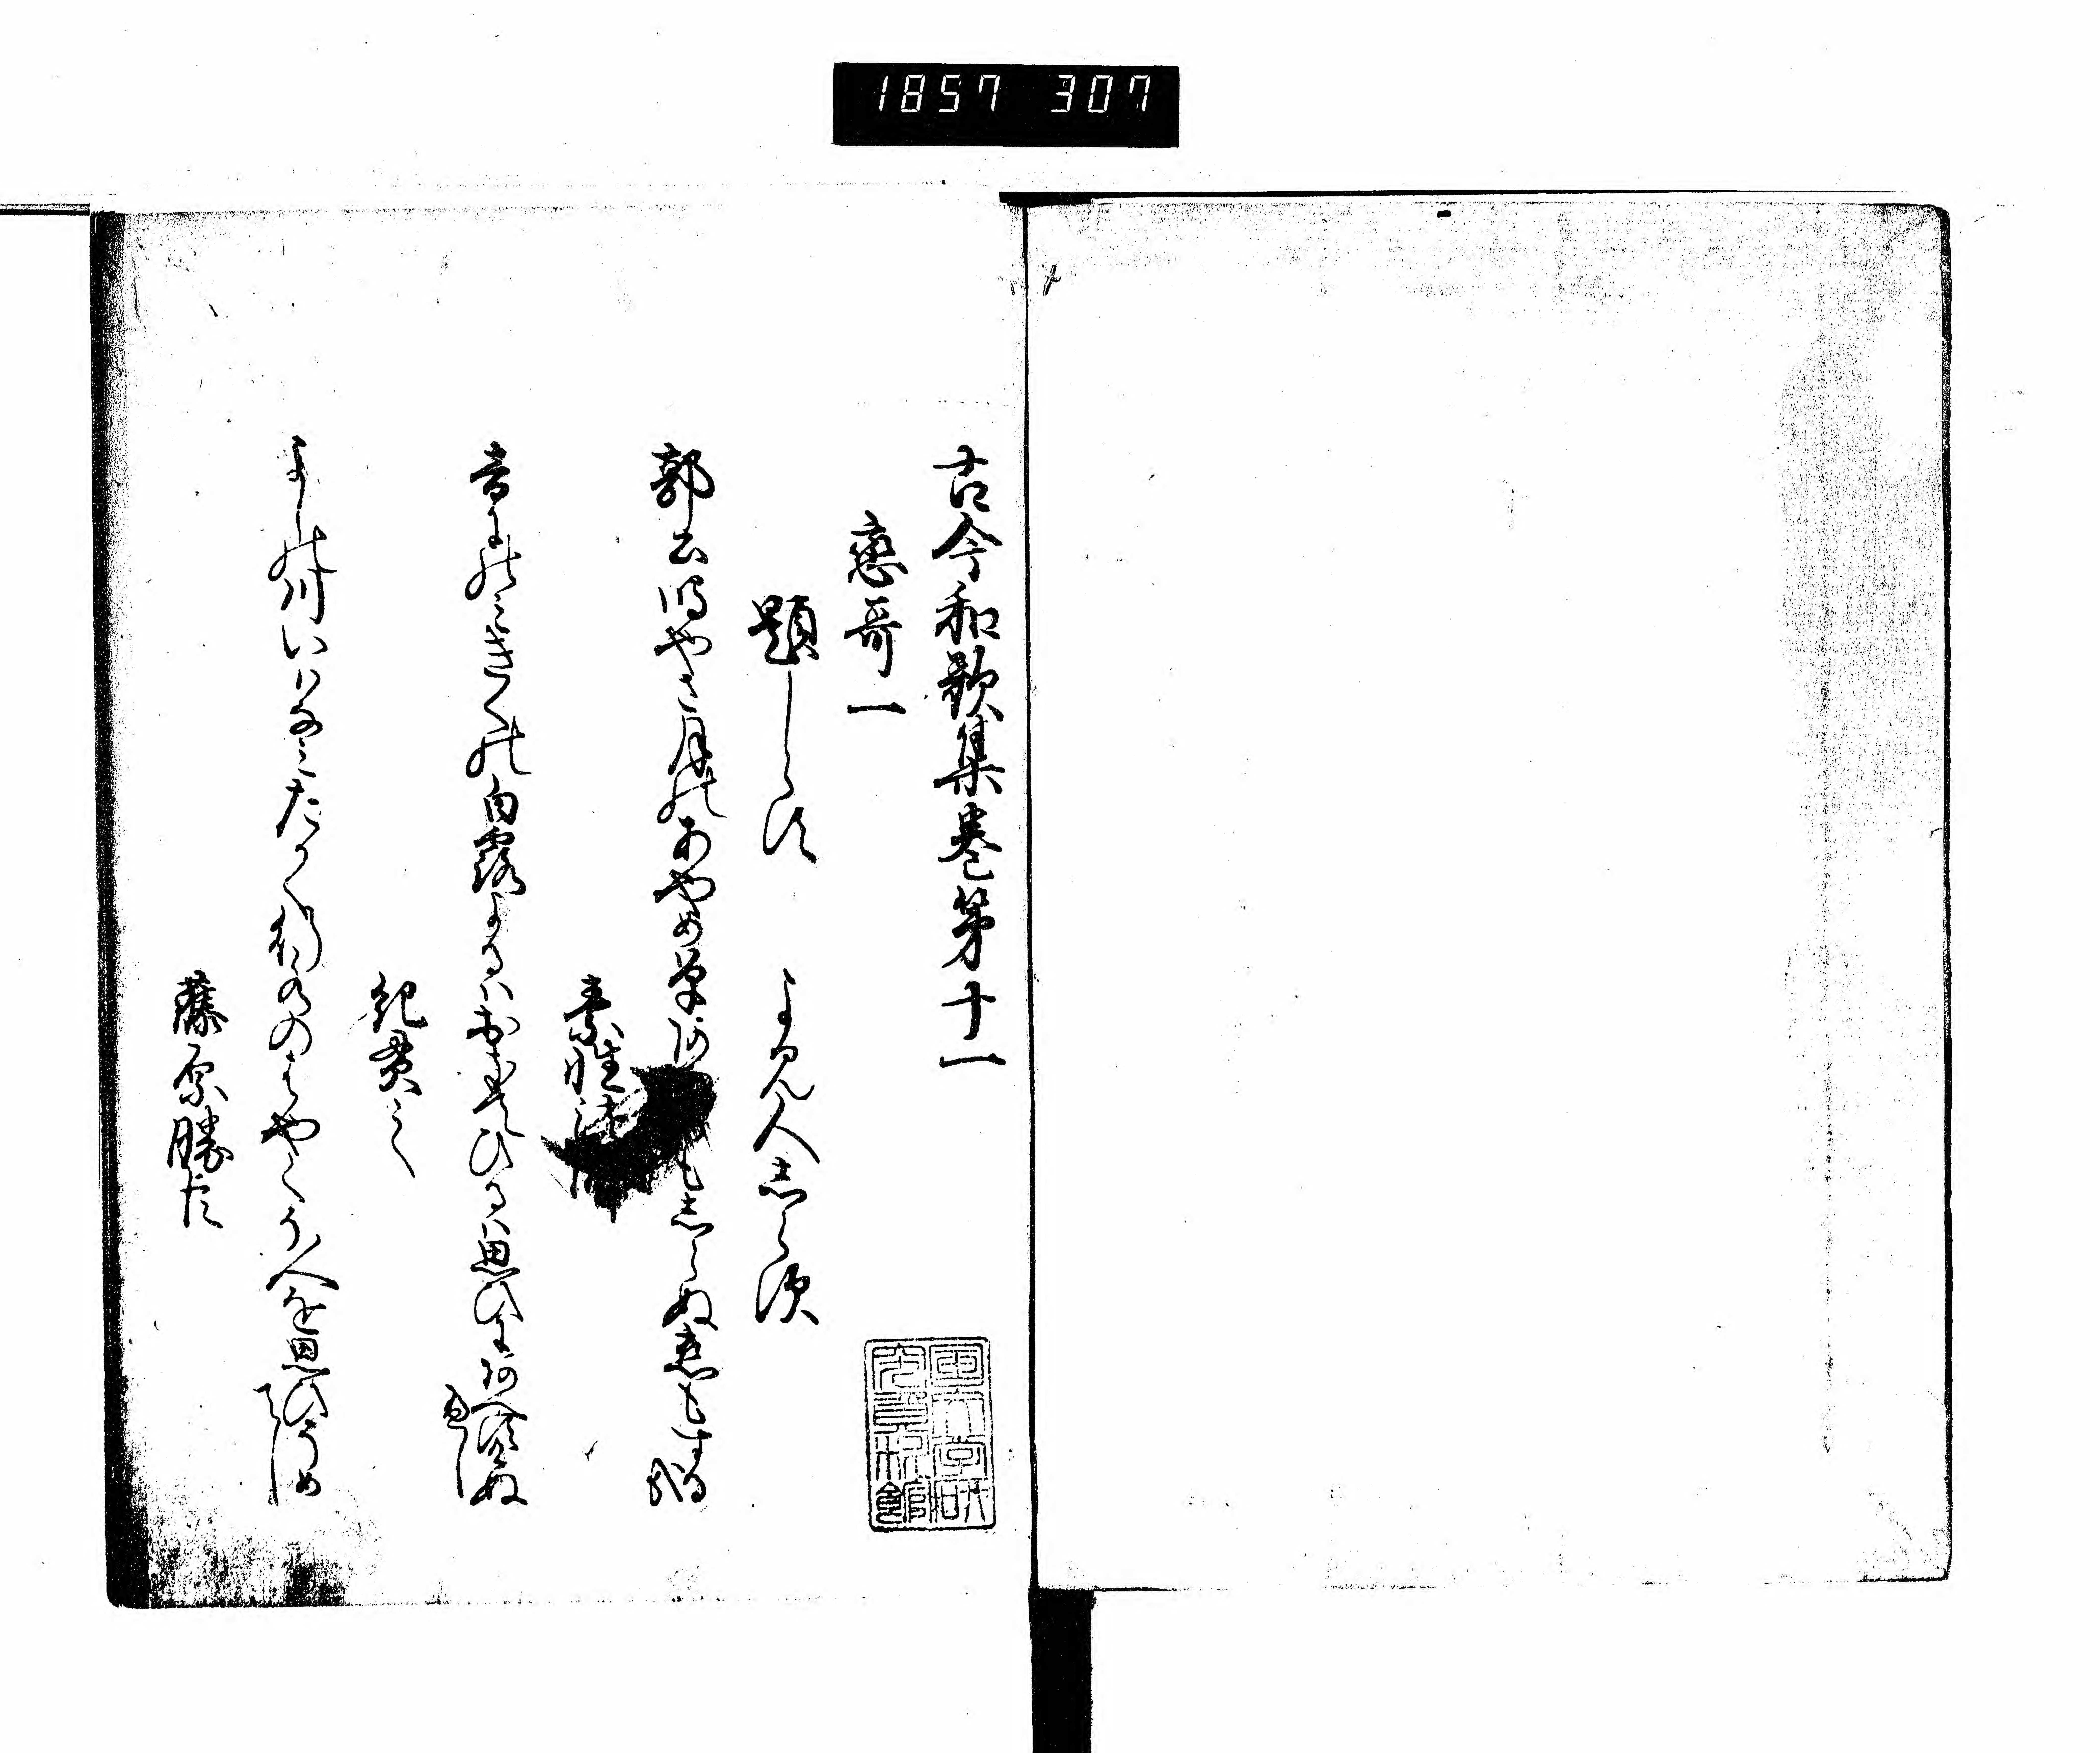 1857 307
古今和歌集巻第十一
恋哥一
題しらす　よみ人志らす
郭公鳴やさ月のあやめ草 志らぬ恋もする哉
素性法
音にのみきくの白露よるはおきてひるは思ひにあへすけぬ
へし
紀貫之
よしの川いはなみたかく行水のはやくそ人を思ひそめ
てし
藤原勝臣
国文学研
究資料館